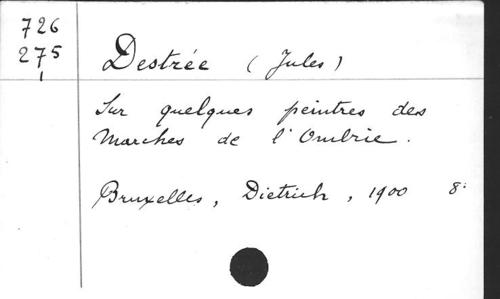 726
275
1
Destrée (Jules)
Sur quelques peintres des
Marches de l'Ombrie.
Bruxelles, Dietrich, 1900 8: